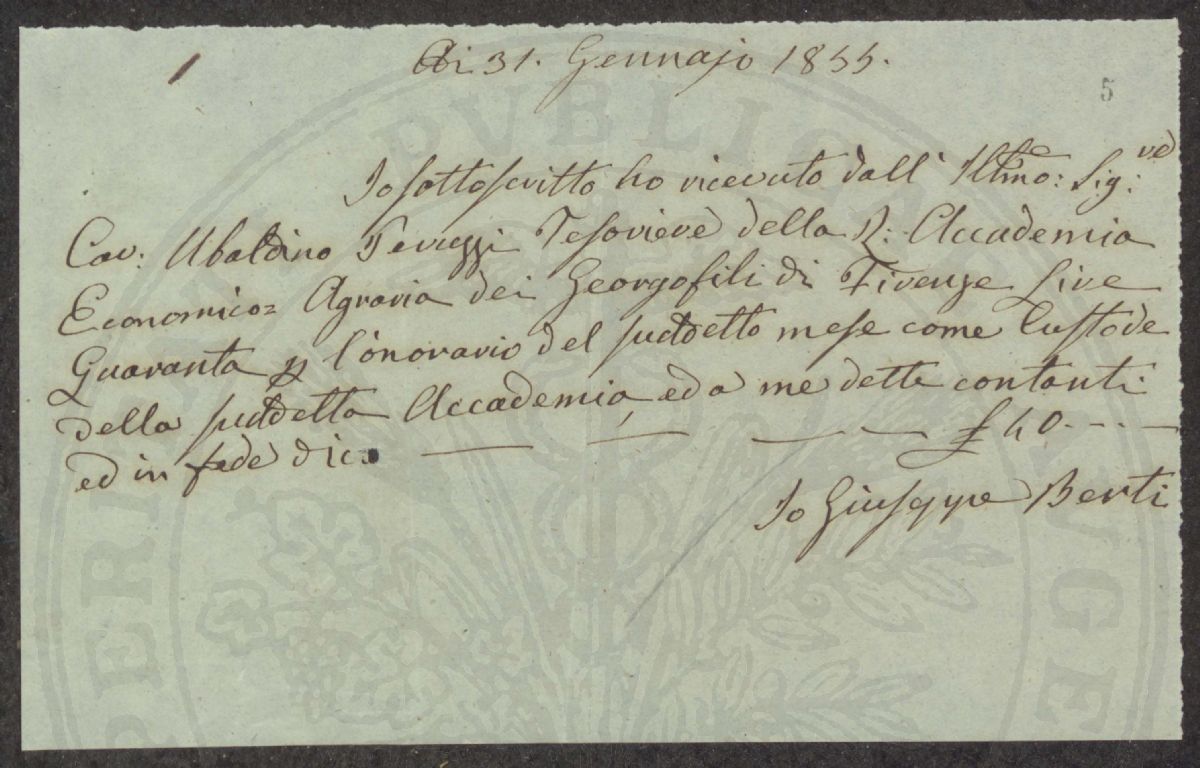 1
Adi 31. Gennajo 1855.
5
Io sottoscritto ho ricevuto dall' Illmo: Sig:re
Cav: Ubaldino Peruzzi Tesoriere della R: Accademia
Economico= Agraria dei Georgofili di Firenze Lire
Quaranta p l'onorario del suddetto mese come Custode
della suddetta Accademia, ed a me dette contanti
ed in fede dico £ 40.
Io Giuseppe Berti